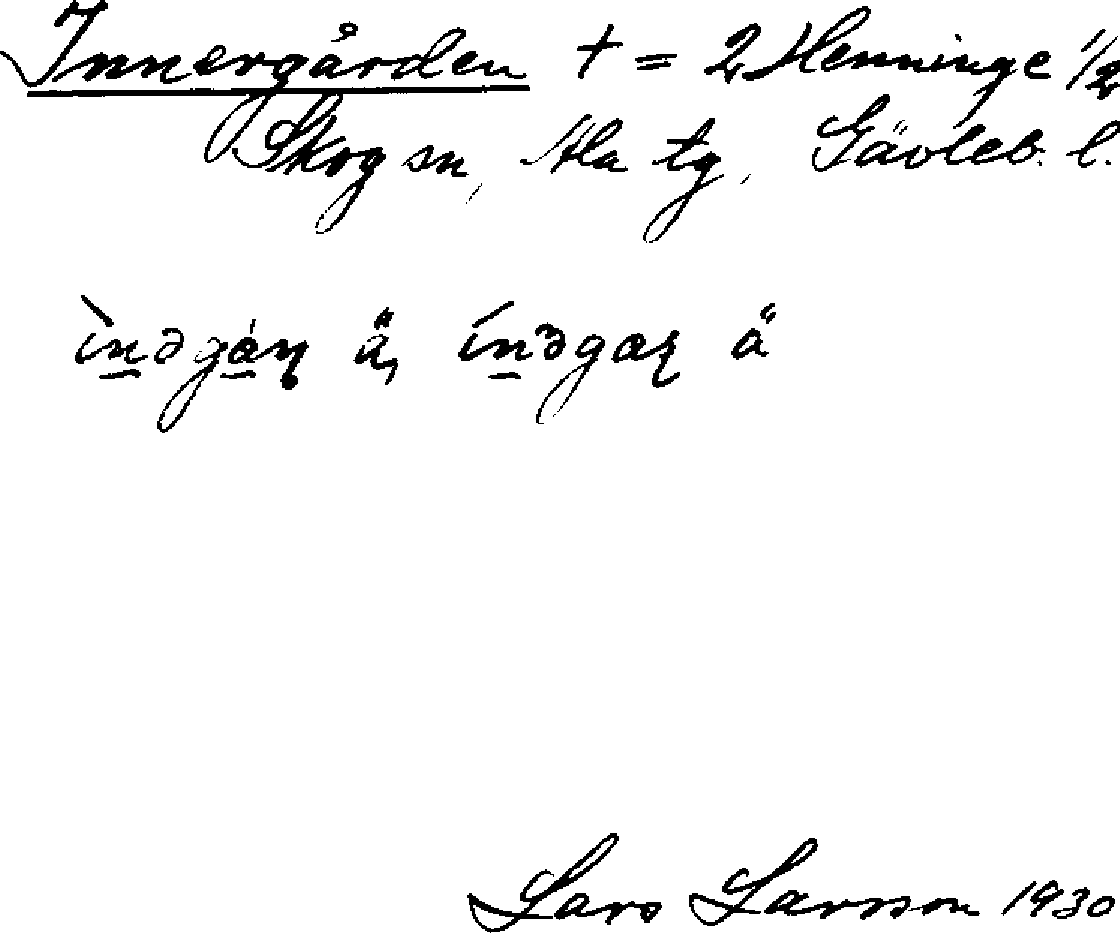 Innergården † = 2 Henninge 1/2
Skog sn, Ala tg, Gävleb. l.
ìnəgáɳ ä̊, ínəgaɽ ä̊
Lars Larsson 1930